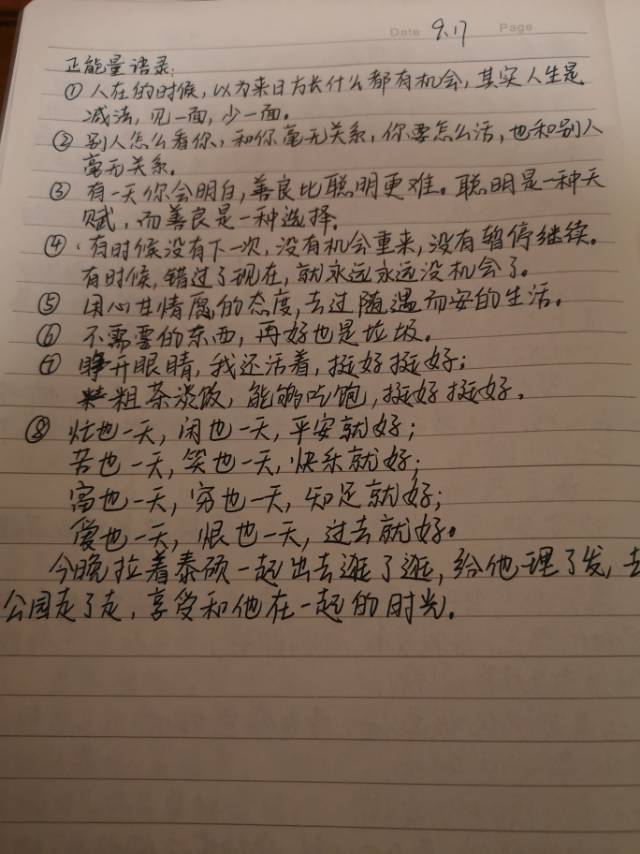 Date 9.17 Page
正能量语录:
① 人在的时候,以为来日方长什么都有机会,其实人生是
减法,见一面,少一面。
② 别人怎么看你,和你毫无关系,你要怎么活,也和别人
毫无关系。
③ 有一天你会明白,善良比聪明更难。聪明是一种天
赋,而善良是一种选择。
④ 有时候没有下一次,没有机会重来,没有暂停继续。
有时候,错过了现在,就永远永远没机会了。
⑤ 用心甘情愿的态度,去过随遇而安的生活。
⑥ 不需要的东西,再好也是垃圾。
⑦ 睁开眼睛,我还活着,挺好挺好;
粗茶淡饭,能够吃饱,挺好挺好。
⑧ 忙也一天,闲也一天,平安就好;
苦也一天,笑也一天,快乐就好;
富也一天,穷也一天,知足就好;
爱也一天,恨也一天,过去就好。
今晚拉着泰硕一起出去逛了逛,给他理了发,去
公园走了走,享受和他在一起的时光。